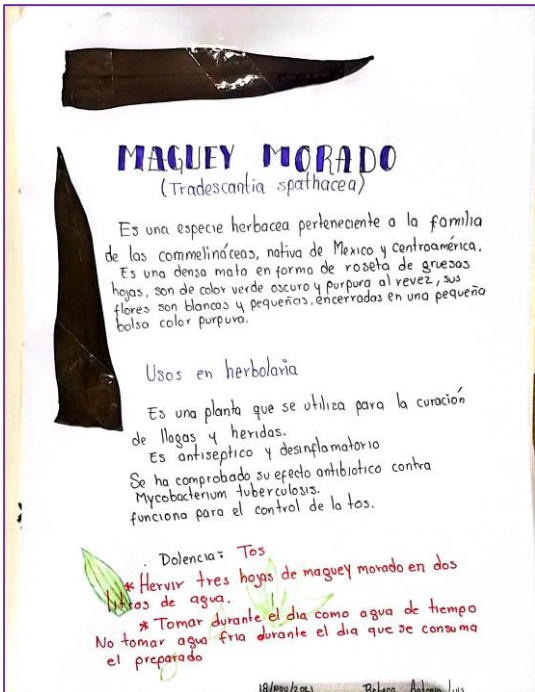 MAGUEY MORADO
(Tradescantia spathacea)
Es una especie herbacea perteneciente a la familia
de las commelináceas, nativa de Mexico y centroamérica.
Es una densa mata en forma de roseta de gruesas
hojas, son de color verde oscuro y purpura al revez, sus
flores son blancas y pequeñas, encerradas en una pequeña
bolsa color purpura.
Usos en herbolaria
Es una planta que se utiliza para la curación
de llagas y heridas.
Es antiseptico y desinflamatorio
Se ha comprobado su efecto antibiotico contra
Mycobacterium tuberculosis.
funciona para el control de la tos.
Dolencia: Tos
* Hervir tres hojas de maguey morado en dos
litros de agua.
* Tomar durante el dia como agua de tiempo
No tomar agua fria durante el dia que se consuma
el preparado
18/nov/2021 Antonio Luis